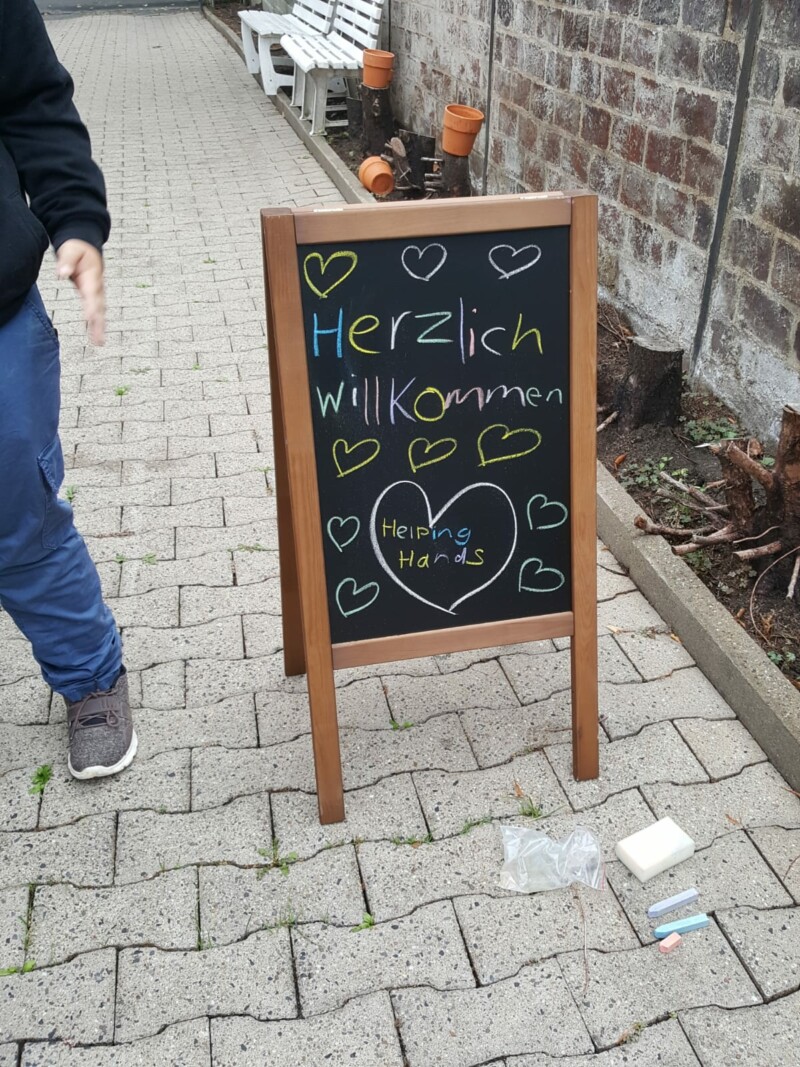 Herzlich
willkommen
Helping
Hands